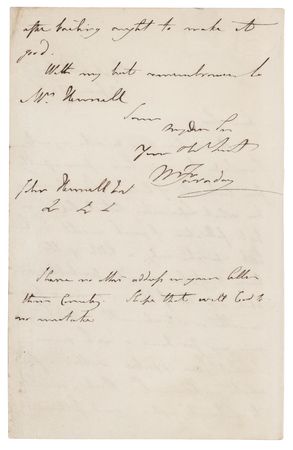 after boiling ought to make it
good.
With my best remembrance to
Mrs
I am
My dear Sir
Your Obt Servt
M Faraday
John Esq
&c &c &c
I have no other address in your letter
than I hope that will lead to
no mistake